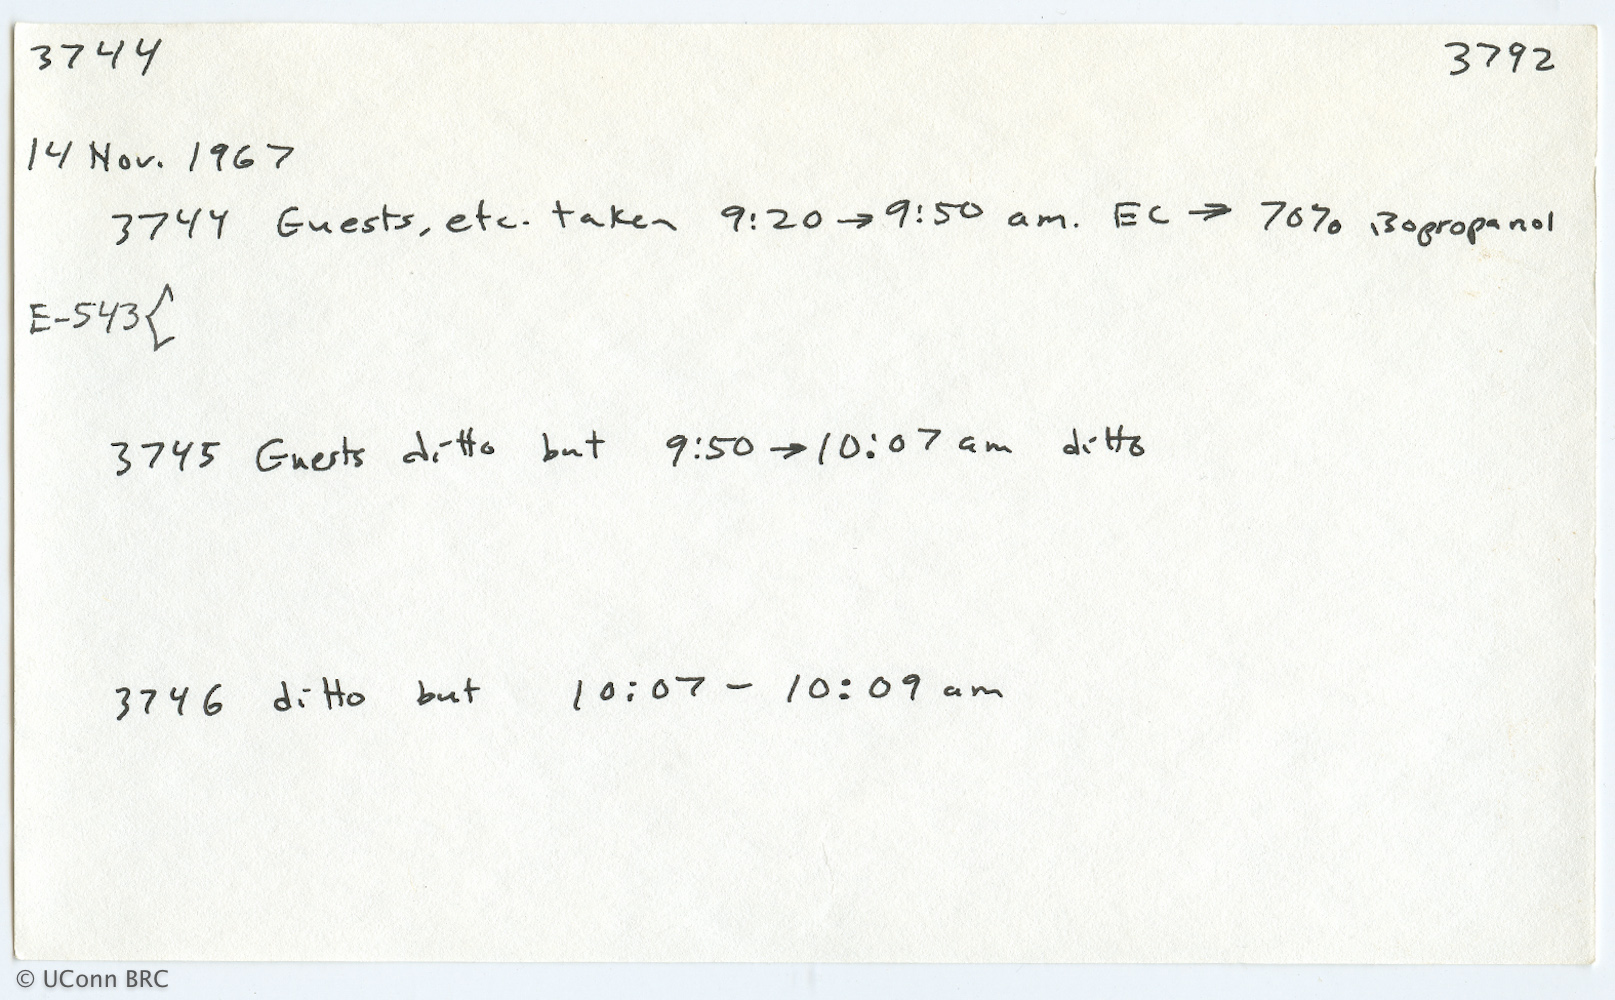 3744 3792
14 Nov. 1967
3744 Guests, etc. taken 9:20 → 9:50 am. EC → 70% isopropanol
E-543{
3745 Guests ditto but 9:50 → 10:07 am ditto
3746 ditto but 10:07 - 10:09 am
© UConn BRC